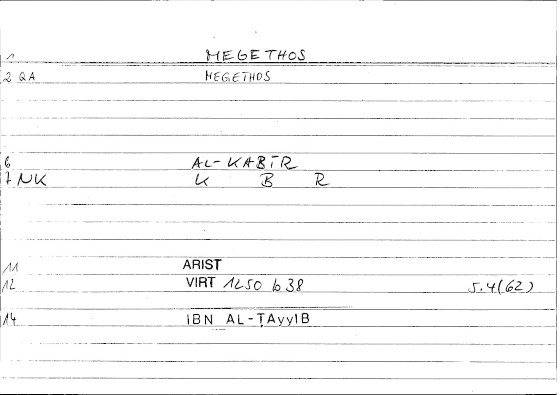 1 MEGETHOS
2 QA MEGETHOS
6 AL-KABĪR
7 NK K B R
11 ARIST
12 VIRT 1250 b 38 5.4(62)
14 IBN AL-ṬAyyIB